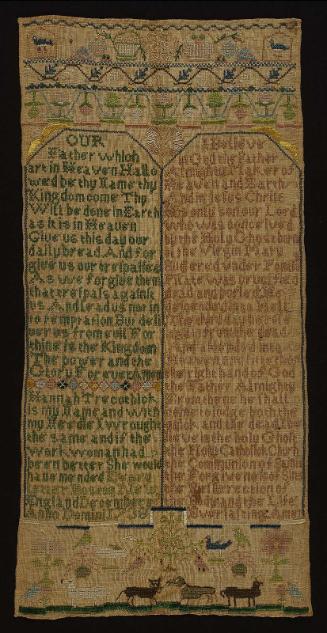 OUR
Father which
art in Heaven Hallo
wed be thy Name thy
Kingdom come Thy
Will be done in Earth
as it is in Heaven
Give us this day our
daily bread And for
give us our trespasses
As we forgive them
that trespass against
us And lead us not in
to temptation But deli
ver us from evil For
thine is the Kingdom
The power and the
Glory For ever Amen
Hannah Trecothick
is my Name and with
my Needle I wrought
the same and if the
Work woman had
been better She would
have mended
England December
Anno Domini
I Believe
in God the Father
Almighty Maker of
Heaven and Earth
And in Jesus Christ
his only son our Lord
who was conceived
by the Holy Ghost born
of the Virgin Mary
Suffered under Ponti
Pilate was crucified
dead and
the right hand of God
the Father Almighty
he shall
come to judge both the
quick and the dead
the holy Ghost
the Holy Catholick Church
the Communion of Saints
the Forgiveness of Sins
the Resurrection of
Body and the Life
Everlasting Amen